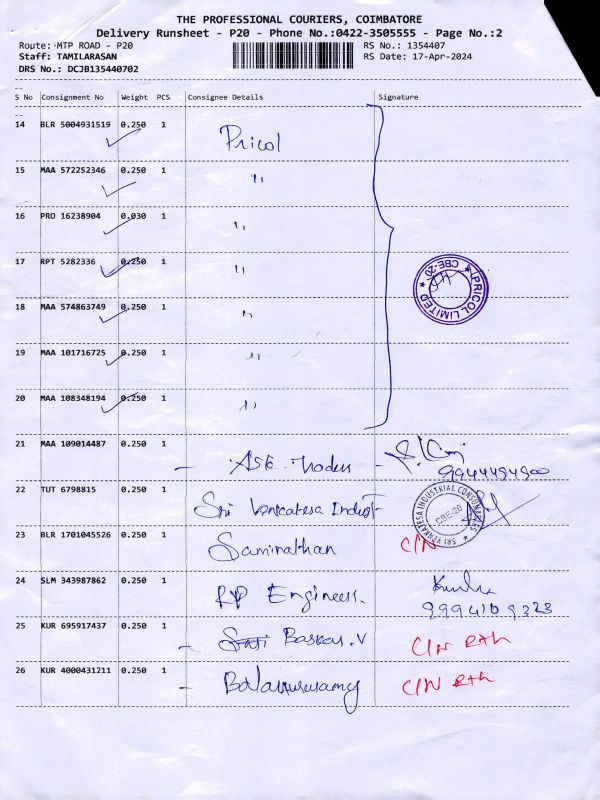 THE PROFESSIONAL COURIERS, COIMBATORE
Delivery Runsheet - P20 - Phone No.:0422-3505555 - Page No.:2
Route: MTP ROAD - P20
RS No.: 1354407
Staff: TAMILARASAN
RS Date: 17-Apr-2024
DRS No.: DCJB135440702
S No Consignment No Weight PCS Consignee Details Signature
14 BLR 5004931519 0.250 1 Pricol
15 MAA 572252346 0.250 1 "
16 PRO 16238904 0.030 1 "
17 RPT 5282336 0.250 1 "
PRICOL LIMITED * CBE-20. *
18 MAA 574863749 0.250 1 "
19 MAA 101716725 0.250 1 "
20 MAA 108348194 0.250 1 "
21 MAA 109014487 0.250 1
22 TUT 6798815 0.250 1 Sri Venkatesa Indust
SRI VENKATESA INDUSTRIAL CONSUMABLES * CBE-20
23 BLR 1701045526 0.250 1 Saminathan C/N
24 SLM 343987862 0.250 1 Engineers.
9994109323
25 KUR 695917437 0.250 1 Baskar. V C/N RTH
26 KUR 4000431211 0.250 1 C/N RTH